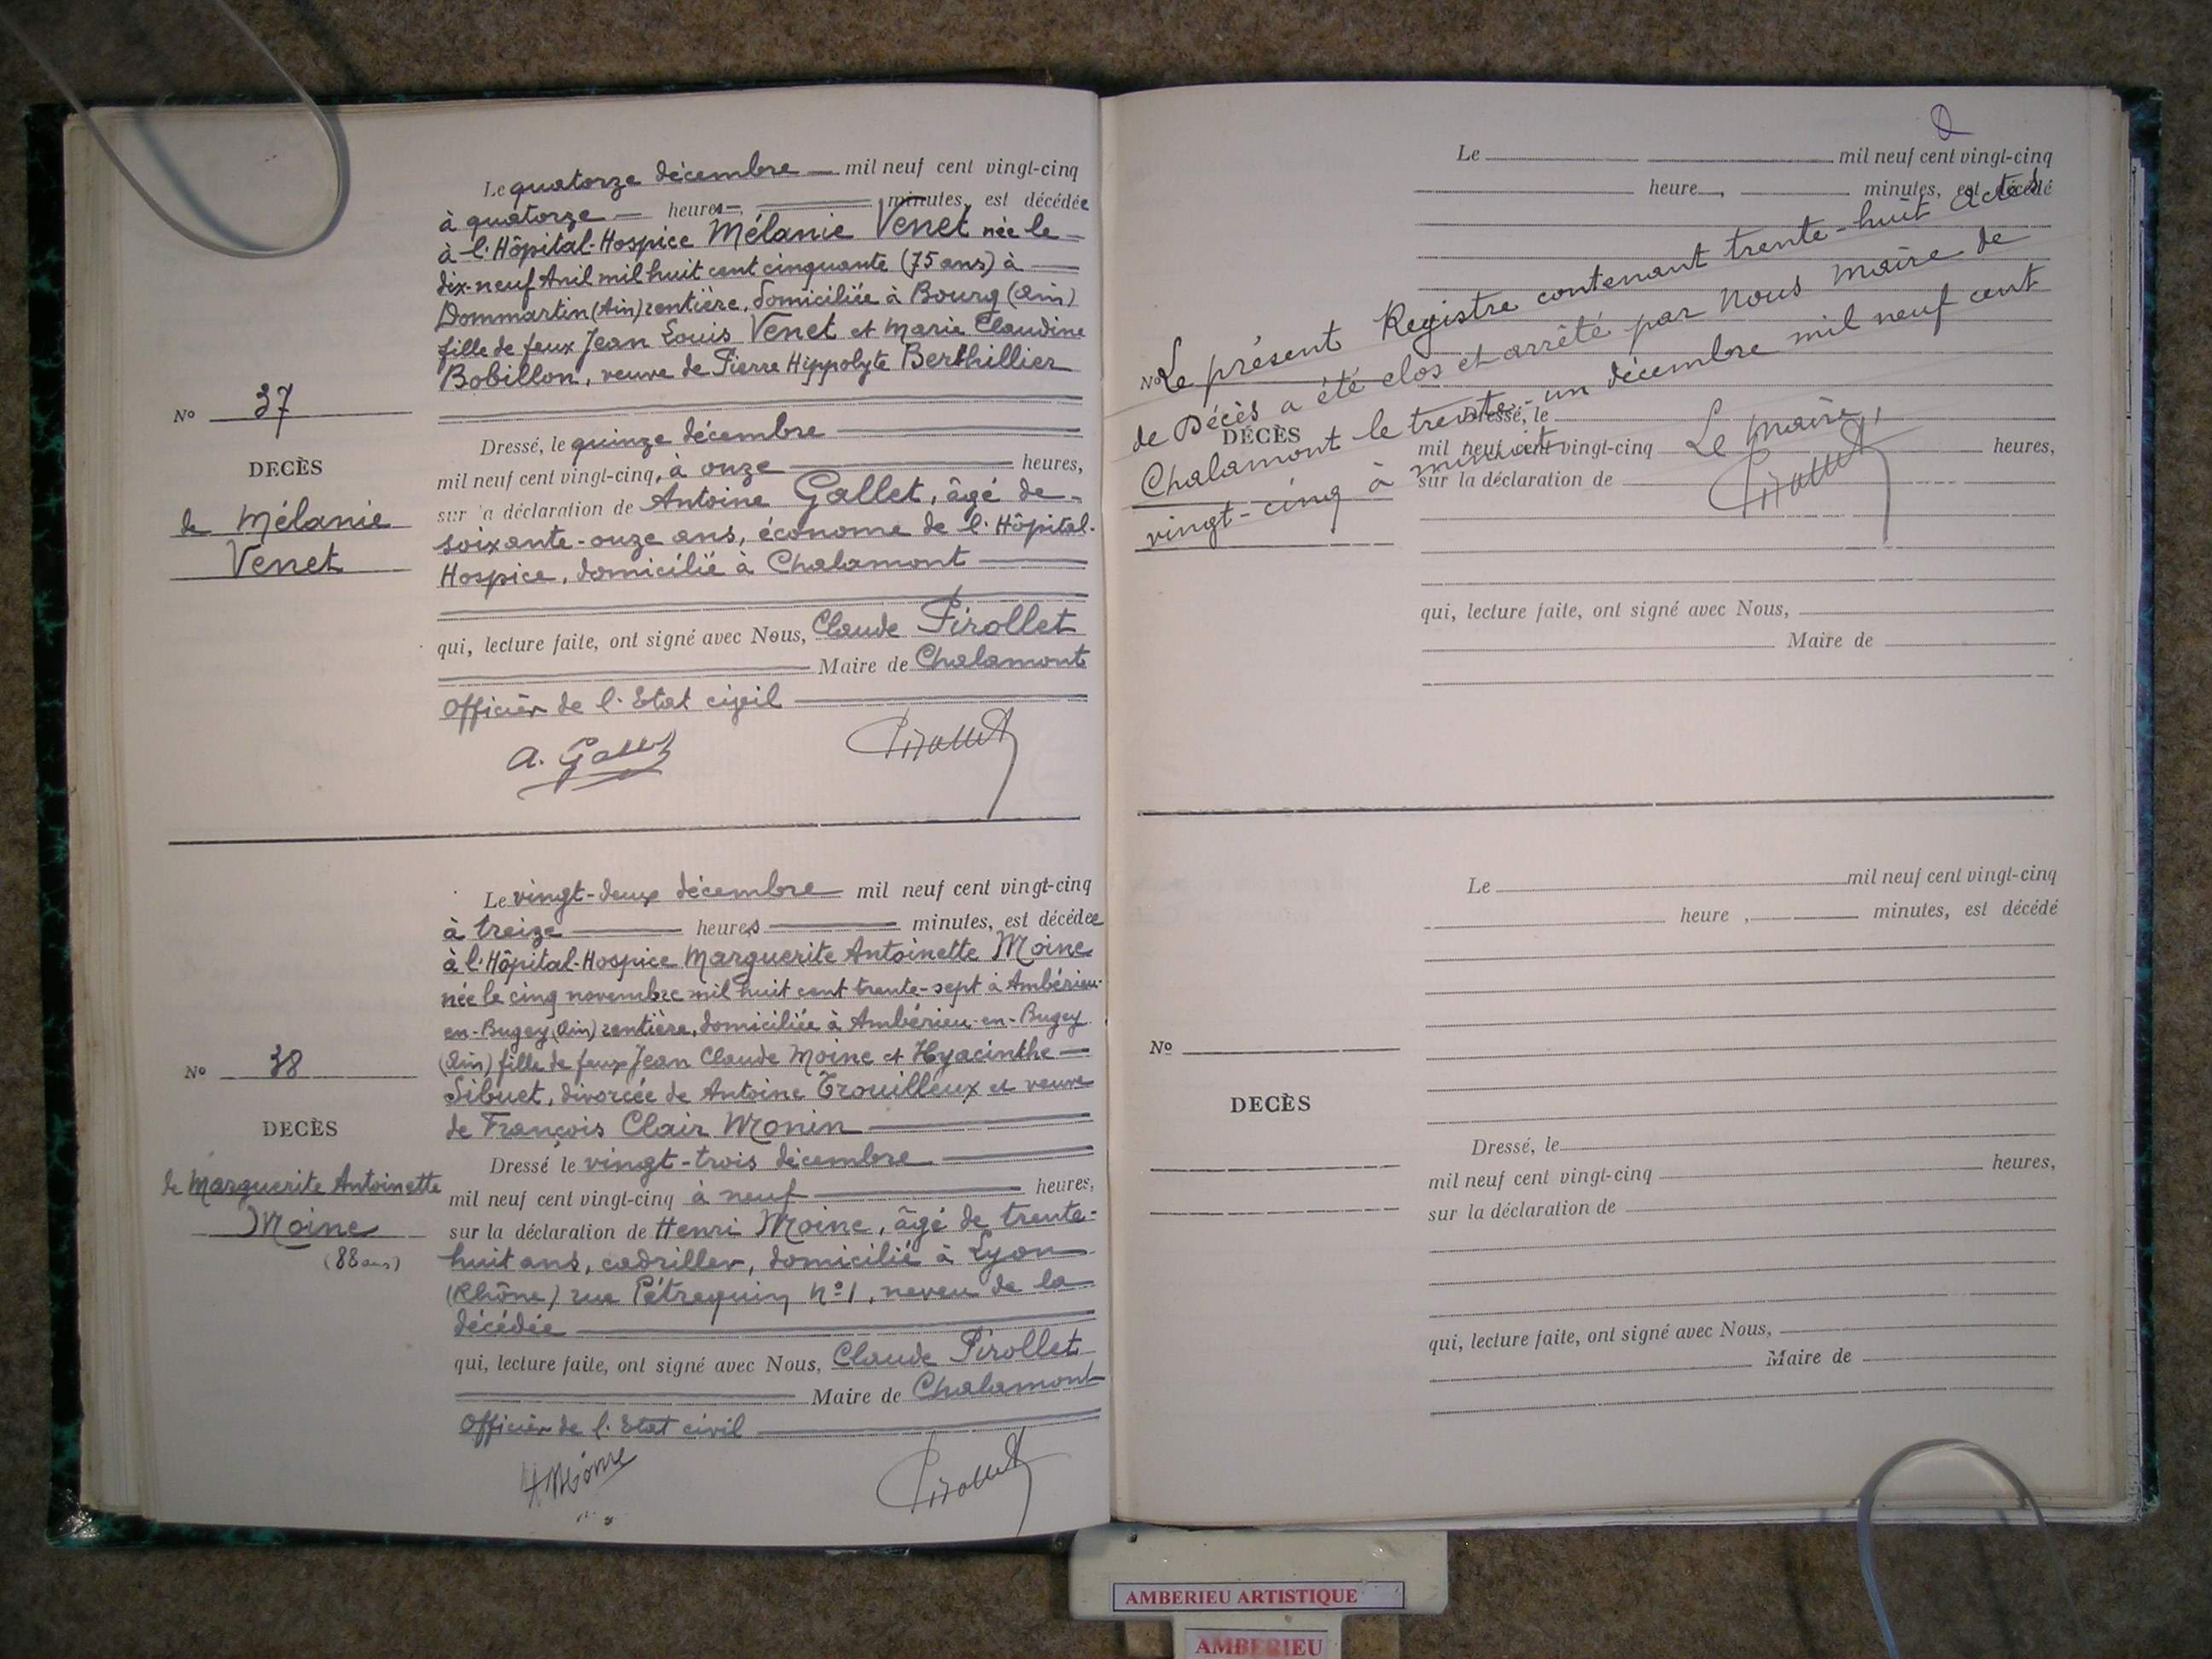 Le quatorze décembre mil neuf cent vingt-cinq
à quatorze heures, minutes, est décédée
à l'Hôpital-Hospice Mélanie Venet née le
dix-neuf Avril mil huit cent cinquante (75 ans) à
Dommartin (Ain) rentière, domiciliée à Bourg (Ain)
fille de feux Jean Louis Venet et Marie Claudine
Bobillon, veuve de Pierre Hippolyte Berthillier
No 37
DECÈS
de Mélanie
Venet
Dressé, le quinze décembre
mil neuf cent vingt-cinq, à onze heures,
sur la déclaration de Antoine Gallet, âgé de
soixante-onze ans, économe de l'Hôpital-
Hospice, domicilié à Chalamont
qui, lecture faite, ont signé avec Nous, Claude Pirollet
Maire de Chalamont
Officier de l'Etat civil
A. Gallet Pirollet
Le vingt-deux décembre mil neuf cent vingt-cinq
à treize heures minutes, est décédée
à l'Hôpital-Hospice Marguerite Antoinette Moine
née le cinq novembre mil huit cent trente-sept à Ambérieu-
en-Bugey (Ain) rentière, domiciliée à Ambérieu-en-Bugey
(Ain) fille de feux Jean Claude Moine et Hyacinthe
Sibuet, divorcée de Antoine Trouilleux et veuve
de François Clair Monin
No 38
DECÈS
de Marguerite Antoinette
Moine
(88 ans)
Dressé le vingt-trois décembre
mil neuf cent vingt-cinq à neuf heures,
sur la déclaration de Henri Moine, âgé de trente-
huit ans, domicilié à Lyon
(Rhône) rue Pétrequin No 1, neveu de la
décédée
qui, lecture faite, ont signé avec Nous, Claude Pirollet
Maire de Chalamont
Officier de l'Etat civil
H Moine Pirollet
Le mil neuf cent vingt-cinq
heure, minutes, est décédé
No
DÉCÈS
Le présent Registre contenant trente-huit actes
de Décès a été clos et arrêté par Nous Maire de
Chalamont le trente-un décembre mil neuf cent
vingt-cinq à minuit
Le Maire,
Pirollet
Dressé, le
mil neuf cent vingt-cinq heures,
sur la déclaration de
qui, lecture faite, ont signé avec Nous,
Maire de
Le mil neuf cent vingt-cinq
heure, minutes, est décédé
No
DECÈS
Dressé, le
mil neuf cent vingt-cinq heures,
sur la déclaration de
qui, lecture faite, ont signé avec Nous,
Maire de
AMBERIEU ARTISTIQUE
AMBERIEU